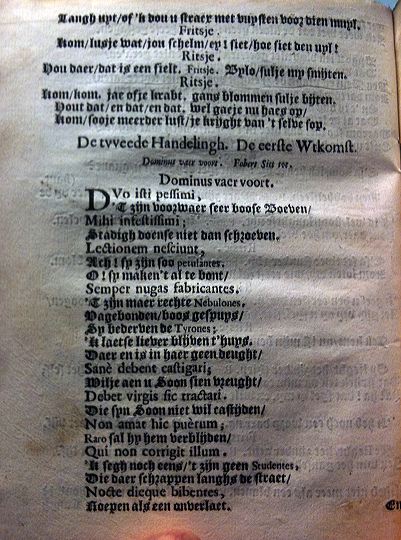 Langh uyt/of 'k dou u straer met vuysten voor dien muyl.
Fritsje.
Kom/lusje wat/jou schelm/ey! siet/hoe siet den uyl!
Ritsje.
Hou daer/dat is een fielt. Fritsje. Bylo/sulje my smijten.
Ritsje.
Kom/kom. jar ofje krabt, gans blommen sulje bijten.
Hout dat/en dat/en dat, wel gaeje nu haes op/
Kom/sooje meerder lust/je krijght van 't selve sop.
De tweede Handelingh. De eerste Wtkomst.
Dominus vaer voort. Faber Sit tot.
Dominus vaer voort.
DVo isti pessimi,
'T zijn voorwaer seer boose Boeven/
Mihi infestissimi;
Stadigh doense niet dan schroeven.
Lectionem nesciunt,
Ach! sp zijn soo petulantes.
O! sp maken't al te bont/
Semper nugas fabricantes.
'T zijn maer rechte Nebulones.
Vagebonden/boos gespuys/
Sy bederven de Tyrones;
'k laetse liever blijven t'huys.
Daer en is in haer geen deught/
Sanè debent castigari;
Wilje aen u Soon sien vreught/
Debet virgis sic tractari.
Die syn Soon niet wil castijden/
Non amat hic puèrum;
Raro sal hy hem verblijden/
Qui non corrigit illum.
'k segh noch eens/'t zijn geen Studentes,
Die daer schrappen langhs de straet/
Nocte dieque bibentes,
Roepen als een onverlaet.
En